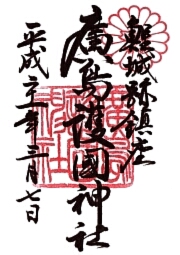 鯉城跡鎮座
廣島護國神社
平成二十一年三月七日